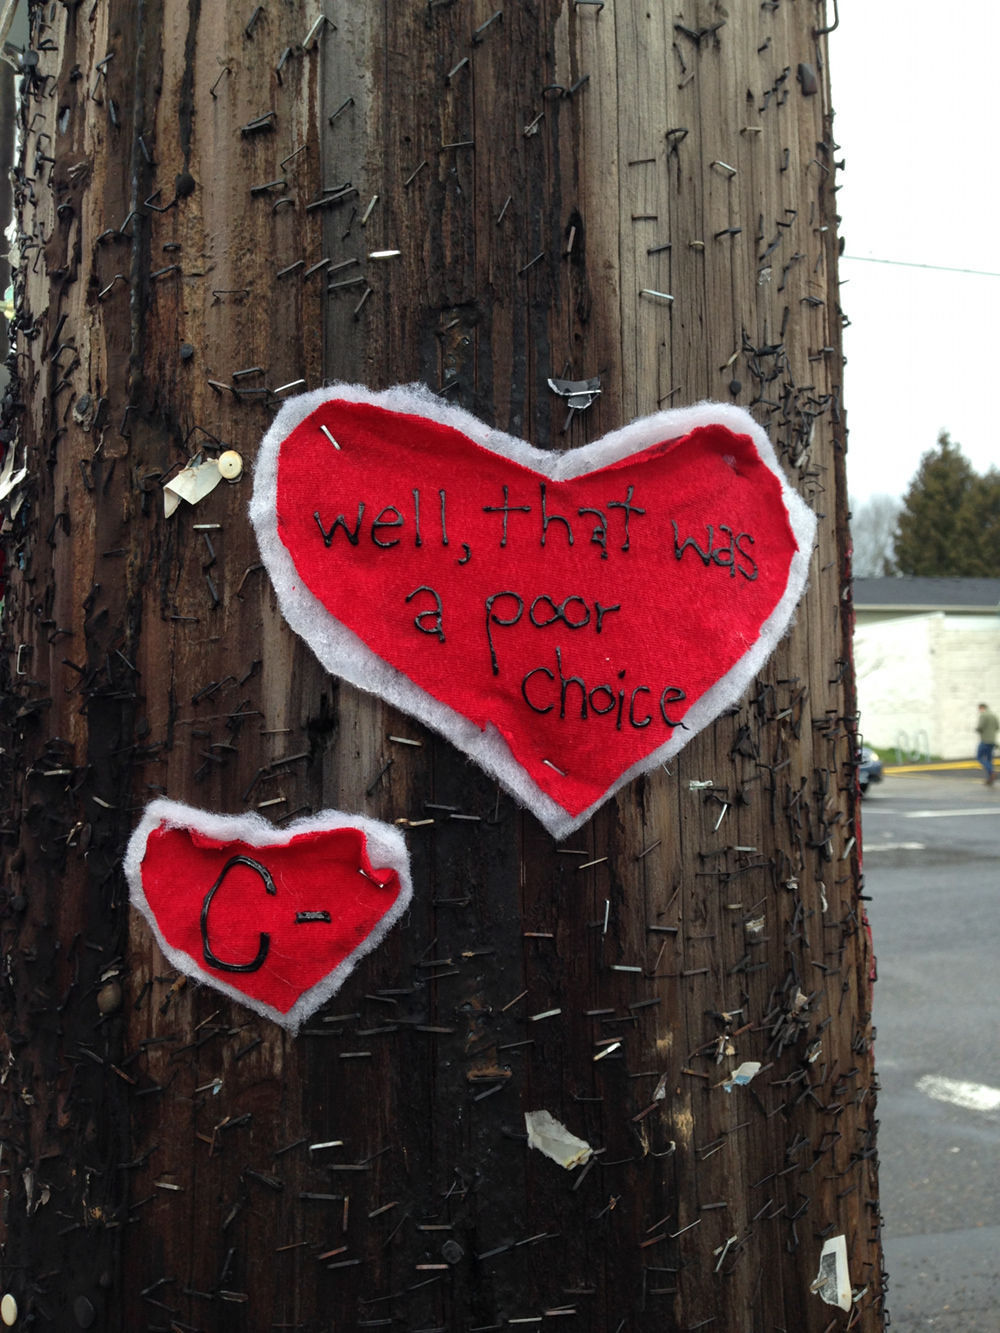 well, that was
a poor
choice
C-